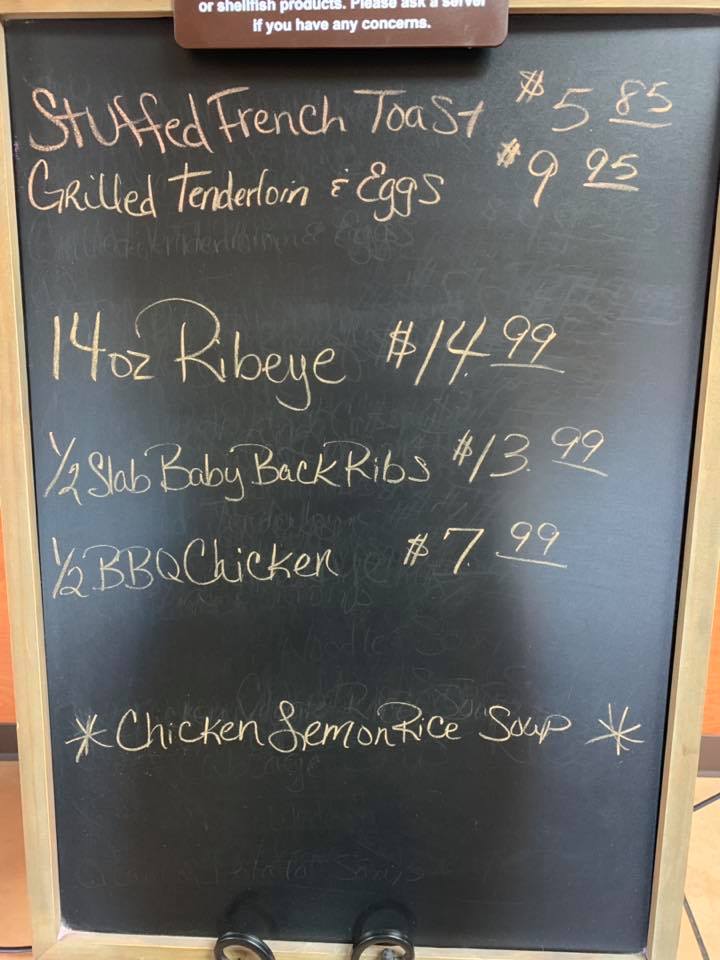 or shellfish products. Please ask a server
if you have any concerns.
Stuffed French Toast $5 85
Grilled Tenderloin & Eggs $9 95
14oz Ribeye $14.99
1/2 Slab Baby Back Ribs $13.99
1/2 BBQ Chicken $7.99
* Chicken Lemon Rice Soup *